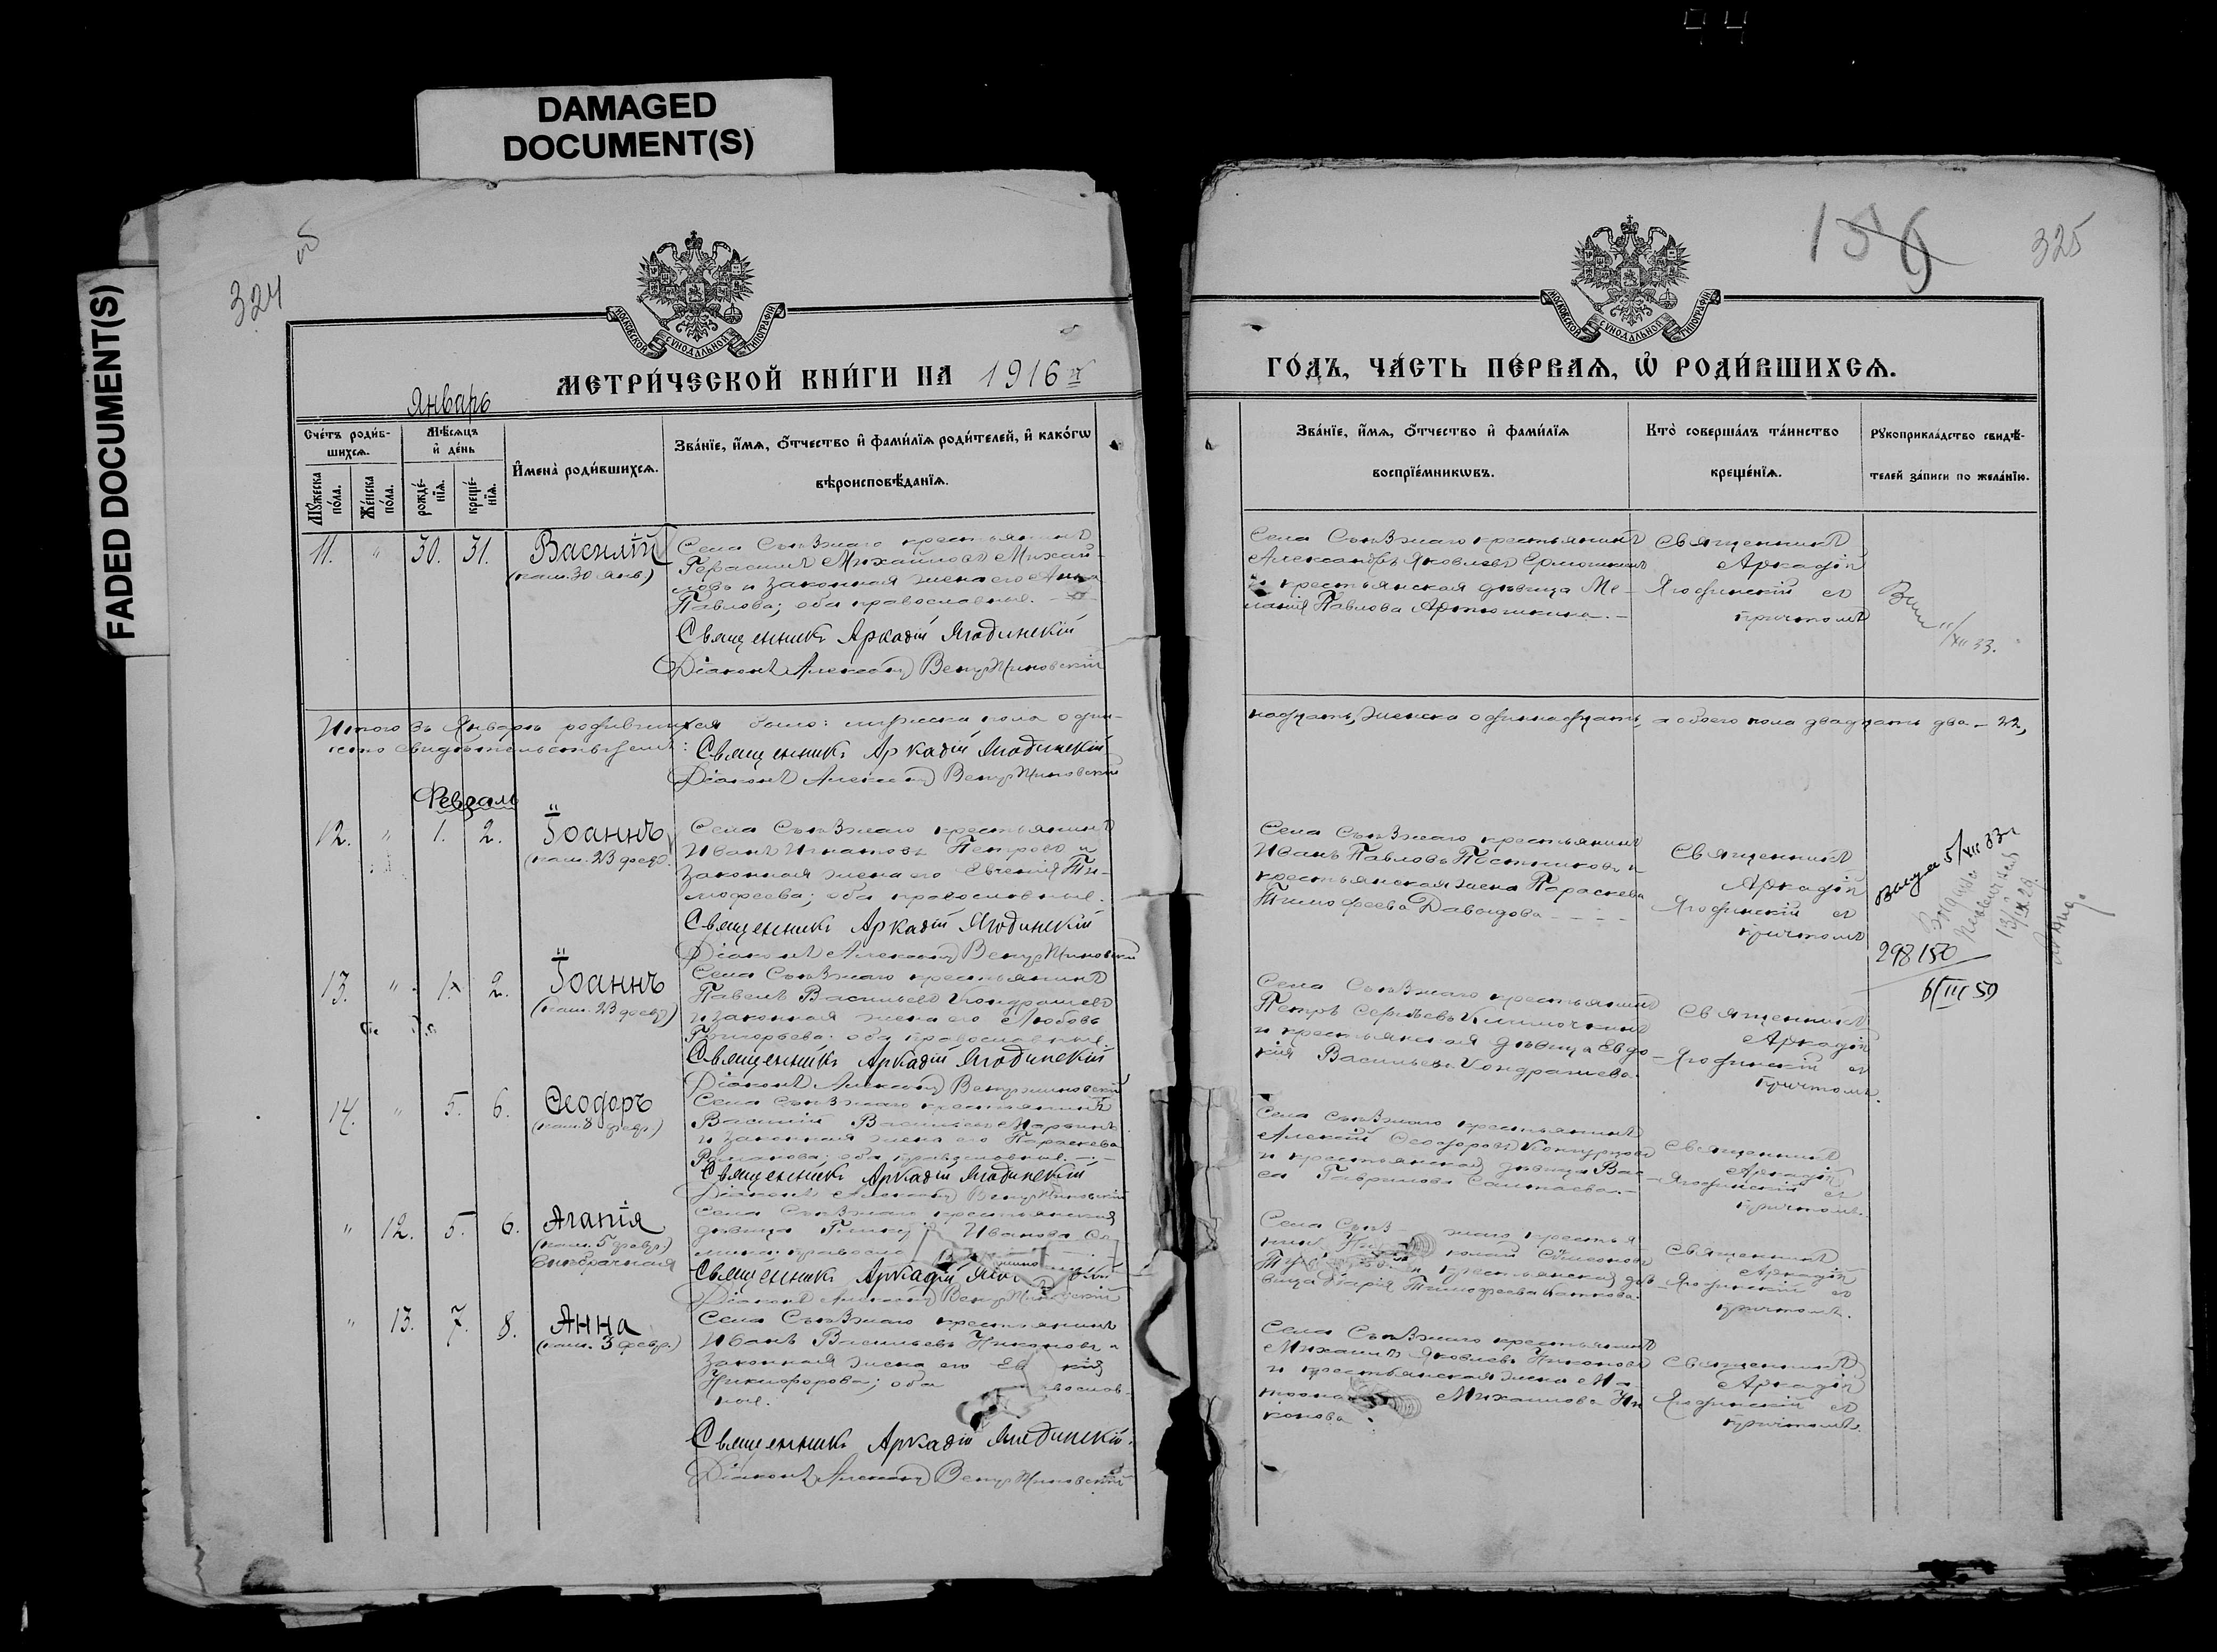 DAMAGED
DOCUMENT(S)
FADED DOCUMENT(S)
324 об
МОСКОВСКОЙ СУНОДАЛЬНОЙ ТИПОГРАФІИ
МЕТРИ́ЧЕСКОЙ КНИ́ГИ НА 1916 й
Январь
Сче́тъ роди́в-
шихсѧ.
Мѣ́сѧцъ
и҆ де́нь
И҆мена̀ роди́вшихсѧ.
Зва́нїе, и҆́мѧ, о҆́тчество и҆ фами́лїѧ роди́телей, и҆ како́гѡ
вѣроисповѣ́данїѧ.
Мꙋ́жеска
по́ла.
Же́нска
по́ла.
рожде́-
нїѧ.
креще́-
нїѧ.
11. " 30. 31. Василій
(пам. 30 янв.)
Села Съѣзжаго крестьянинъ
Герасимъ Михайловъ Михай-
ловъ и законная жена его Анна
Павлова; оба православные.
Священникъ Аркадій Ягодинскій
Діаконъ Венустиновскій
Итого въ Январѣ родившихся было: мужеска пола один-
Священникъ Аркадій Ягодинскій
Діаконъ Венустиновскій
Февраль
12. " 1. 2. Іоаннъ
(пам. 23 февр.)
Села Съѣзжаго крестьянинъ
Иванъ Игнатовъ Петровъ и
законная жена его Евгенія Ти-
мофеева; оба православные.
Священникъ Аркадій Ягодинскій
Діаконъ Венустиновскій
13. " 1. 2. Іоаннъ
(пам. 23 февр.)
Села Съѣзжаго крестьянинъ
Павелъ Васильевъ Кондрашевъ
и законная жена его Любовь
Григорьева; оба православные.
Священникъ Аркадій Ягодинскій
Діаконъ Венустиновскій
14. " 5. 6. Ѳеодоръ
(пам. 8 февр.)
Села Съѣзжаго крестьянинъ
Василій Васильевъ Марьинъ
и законная жена его Параскева
Романова; оба православные.
Священникъ Аркадій Ягодинскій
Діаконъ Венустиновскій
" 12. 5. 6. Агапія
(пам. 5 февр.)
Внѣбрачная
Села Съѣзжаго крестьянская
дѣвица Иванова
Священникъ Аркадій
Діаконъ
" 13. 7. 8. Анна
(пам. 3 февр.)
Села Съѣзжаго крестьянинъ
Иванъ Васильевъ Никоновъ и
законная жена его
Никифорова; оба
ные.
Священникъ Аркадій Ягодинскій.
Діаконъ Венустиновскій
325
МОСКОВСКОЙ СУНОДАЛЬНОЙ ТИПОГРАФІИ
ГО́ДЪ, ЧА́СТЬ ПЕ́РВАѦ, Ѡ҆ РОДИ́ВШИХСѦ.
Зва́нїе, и҆́мѧ, о҆́тчество и҆ фами́лїѧ
воспрїе́мникѡвъ.
Кто̀ соверша́лъ та́инство
креще́нїѧ.
Рꙋкоприкла́дство свидѣ́-
телей за́писи по жела́нїю.
Села Съѣзжаго крестьянинъ
Александръ Яковлевъ Ермошкинъ
и крестьянская дѣвица Ме-
ланія Павлова Артюшкина.
Священникъ
Аркадій
Ягодинскій съ
причтомъ
11/XII 33.
надцать, женска одиннадцать, а обоего пола двадцать два – 22,
Села Съѣзжаго крестьянинъ
Иванъ Павловъ Постниковъ и
крестьянская жена Параскева
Тимофеева Давыдова
Священникъ
Аркадій
Ягодинскій съ
причтомъ
5/XII 33 г
298150
6/III 59
Села Съѣзжаго крестьянинъ
Петръ Сергѣевъ Климочкинъ
и крестьянская дѣвица Евдо-
кія Васильева Кондрашева.
Священникъ
Аркадій
Ягодинскій съ
причтомъ.
Села Съѣзжаго крестьянинъ
Алексій Ѳеодоровъ
и крестьянская дѣвица Вас-
са Гаврилова
Священникъ
Аркадій
Ягодинскій съ
причтомъ.
Села Съѣз- жаго крестья
нинъ колай Сѵмеоновъ
и крестьянская дѣ-
вица Марія Тимофеева
Священникъ
Аркадій
Ягодинскій съ
причтомъ.
Села Съѣзжаго крестьянинъ
Михаилъ Яковлевъ Никоновъ
и крестьянская жена
Михаилова Ни
конова
Священникъ
Аркадій
Ягодинскій съ
причтомъ.